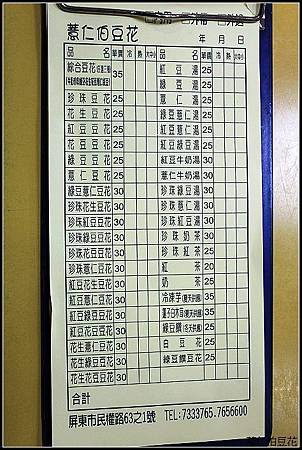 薏仁伯豆花
年 月 日
品名 單價 冷 熱 大中小 品名 單價 冷 熱 大中小
綜合豆花 35 紅豆湯 25
綠豆湯 25
珍珠豆花 25 薏仁湯 25
花生豆花 25 綠豆薏仁湯 30
紅豆豆花 25 紅豆薏仁湯 30
花豆豆花 25 紅豆綠豆湯 25
綠豆豆花 25 紅豆牛奶湯 30
薏仁豆花 25 薏仁牛奶湯 30
綠豆薏仁豆花 30 珍珠綠豆湯 30
珍珠花生豆花 30 珍珠薏仁湯 30
珍珠紅豆豆花 30 珍珠紅豆湯 30
珍珠綠豆豆花 30 珍珠奶茶 30
珍珠花豆豆花 30 珍珠紅茶 25
珍珠薏仁豆花 30 紅茶 20
紅豆花生豆花 30 奶茶 25
紅豆薏仁豆花 30 冷凍芋(夏天供應) 35
紅豆綠豆豆花 30 蓮子白木耳(夏天供應) 35
紅豆花豆豆花 30 綠豆饌(冬天供應) 25
花生薏仁豆花 30 白豆花 25
花生綠豆豆花 30 綠豆饌豆花 25
花生花豆豆花 30
合計
屏東市民權路63之1號 TEL:7333765.7656600
薏仁伯豆花